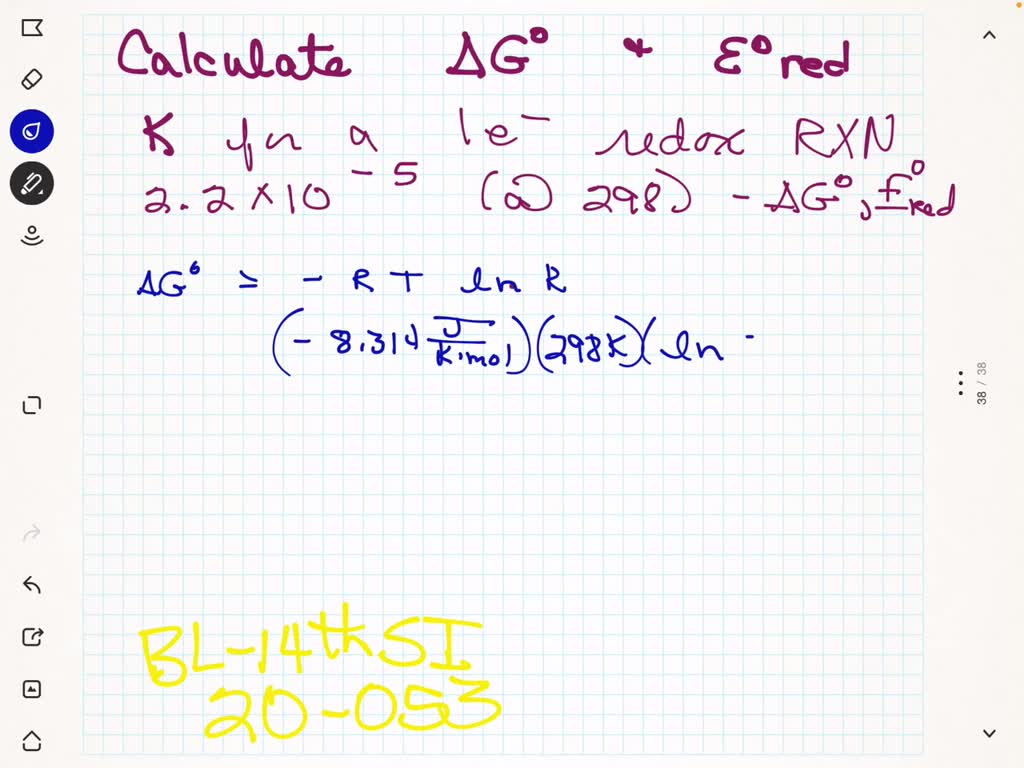 Calculate ΔG° & Ɛ°red
K for a 1e⁻ redox RXN
2.2 x 10⁻⁵ (@ 298) - ΔG°, E°red
ΔG° = - R T ln K
(- 8.314 J/K·mol)(298K)(ln -
38 / 38
BL-14th SI
20-053